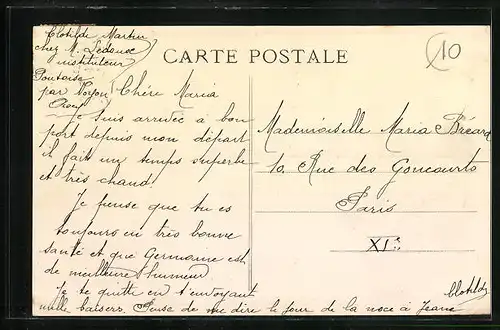 Clotilde Martin
chez M. Ledoux
instituteur
Pontoise
par Noyon
Oise
CARTE POSTALE
10
Chère Maria
Je suis arrivée a bon
port depuis mon départ
il fait un temps superbe
et très chaud.
Je pense que tu es
toujours en très bonne
santé et que Germaine est
de meilleure humeur
Je te quitte en t'envoyant
mille baisers. Pense de me dire le jour de la noce à Jeane
Clotilde
Mademoiselle Maria Bécard
10. Rue des Goncourts
Paris
XIe